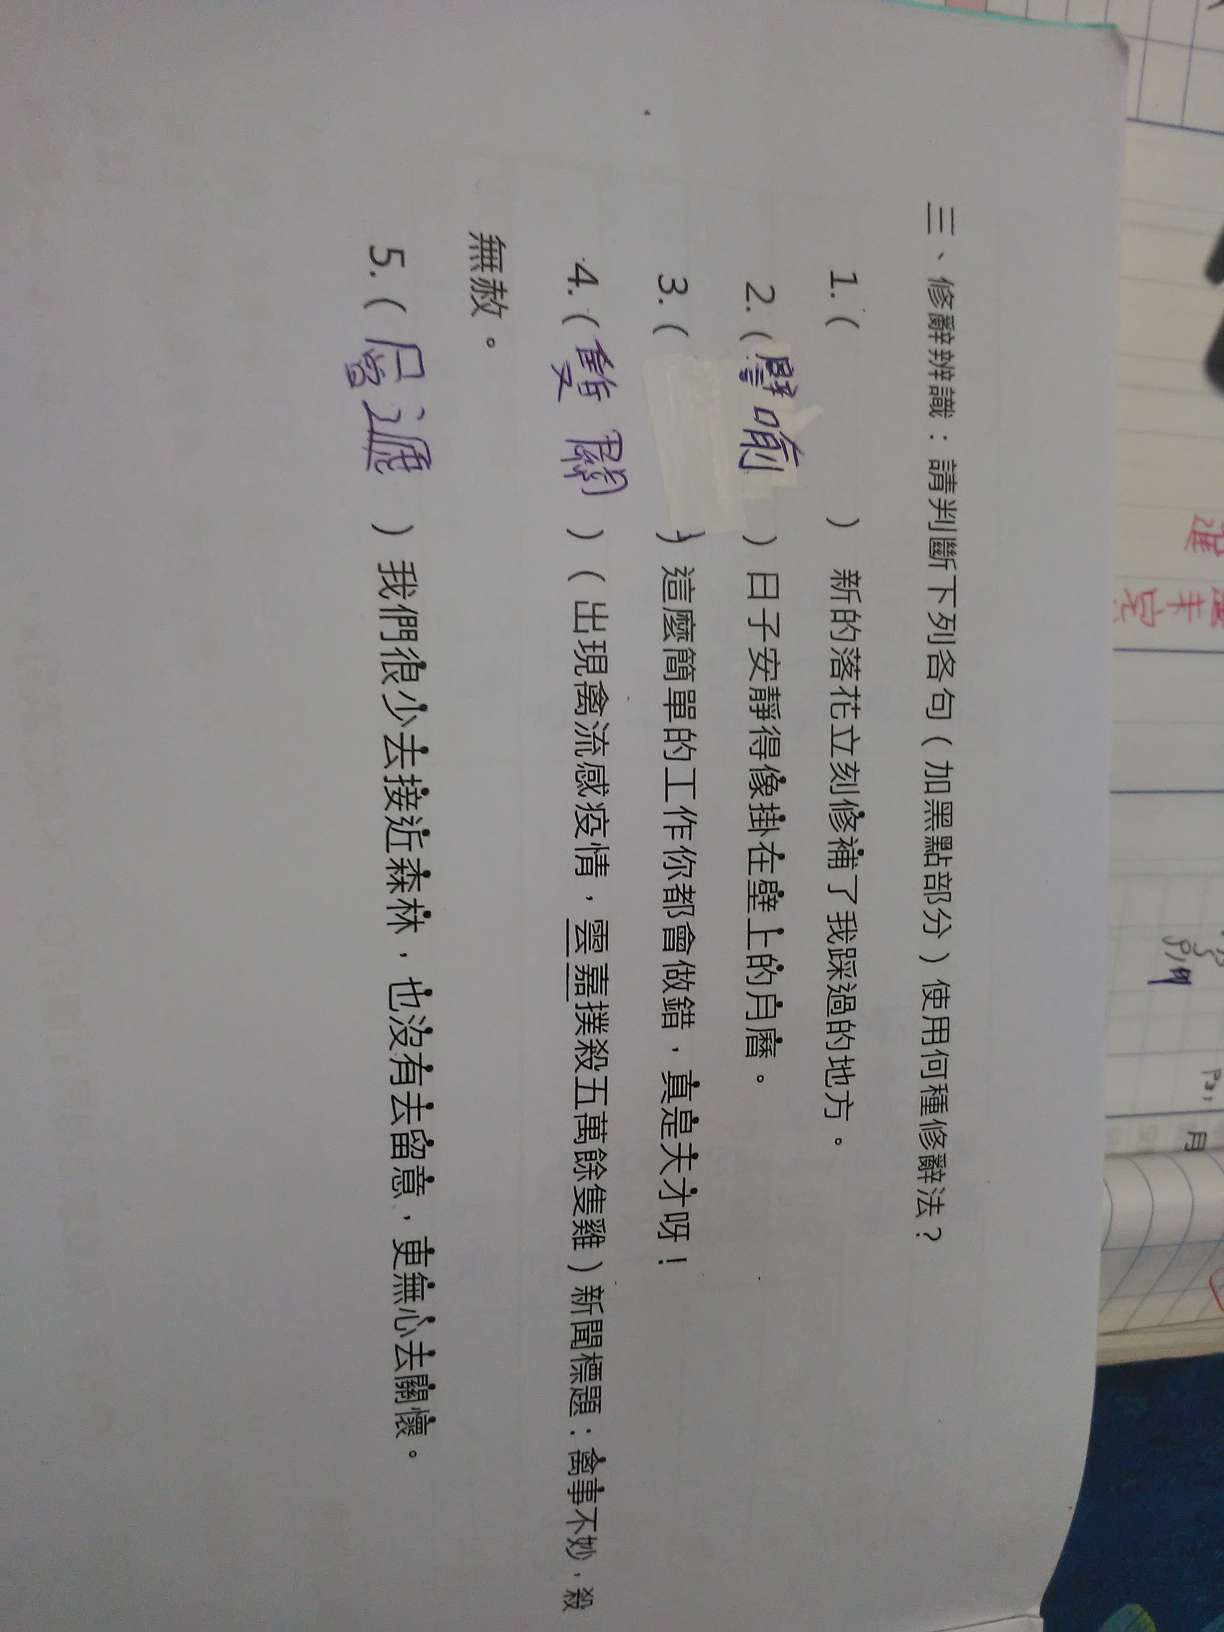 三、修辭辨識：請判斷下列各句（加黑點部分）使用何種修辭法？
1.（　　　）新的落花立刻修補了我踩過的地方。
2.（譬喻）日子安靜得像掛在壁上的月曆。
3.（　　　）這麼簡單的工作你都會做錯，真是天才呀！
4.（雙關）（出現禽流感疫情，雲嘉撲殺五萬餘隻雞）新聞標題：禽事不妙，殺
無赦。
5.（層遞）我們很少去接近森林，也沒有去留意，更無心去關懷。
月